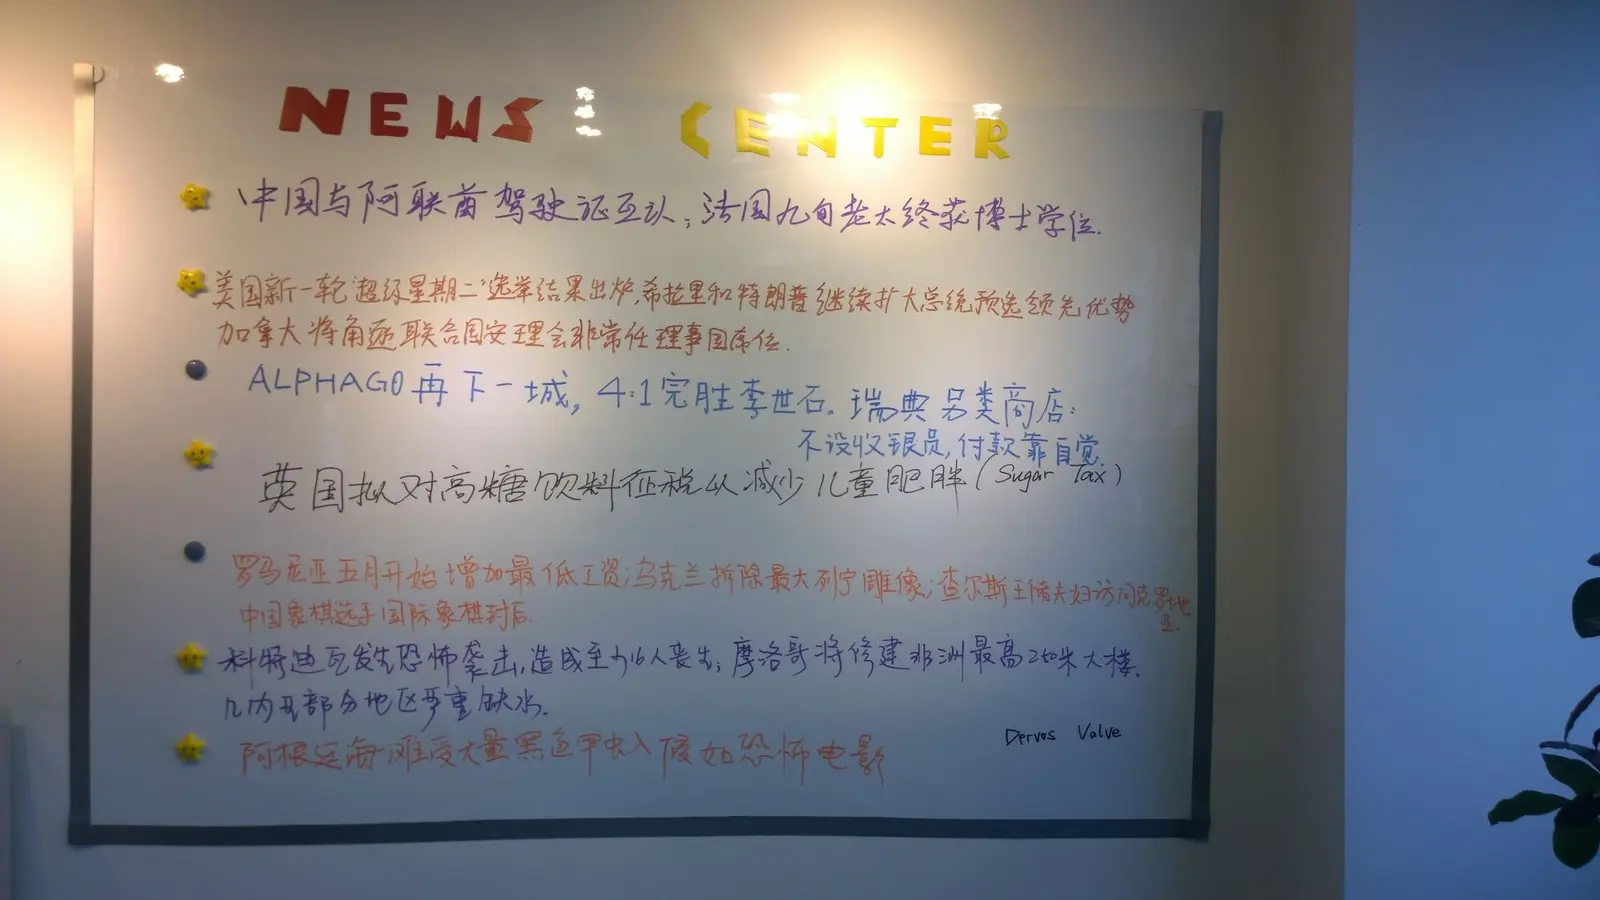 NEWS CENTER
中国与阿联酋驾驶证互认；法国九旬老太终获博士学位.
美国新一轮"超级星期二"选举结果出炉,希拉里和特朗普继续扩大总统预选领先优势
加拿大将角逐联合国安理会非常任理事国席位.
ALPHAGO再下一城, 4:1完胜李世石. 瑞典另类商店:
不设收银员,付款靠自觉.
英国拟对高糖饮料征税以减少儿童肥胖(Sugar Tax)
罗马尼亚五月开始增加最低工资;乌克兰拆除最大列宁雕像;查尔斯王储夫妇访问克罗地
亚.
中国象棋选手国际象棋封后.
科特迪瓦发生恐怖袭击,造成至少16人丧生; 摩洛哥将修建非洲最高250米大楼.
几内亚部分地区严重缺水.
Dervos Valve
阿根廷海滩受大量黑色甲虫入侵如恐怖电影